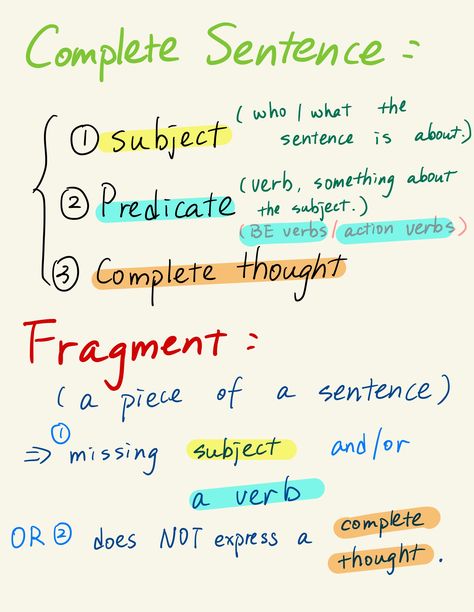 Complete Sentence =
① subject (who / what the
sentence is about.)
② Predicate (verb, something about
the subject.)
(BE verbs / action verbs)
③ Complete thought
Fragment =
(a piece of a sentence)
⇒ ① missing subject and/or
a verb
OR ② does NOT express a complete
thought.